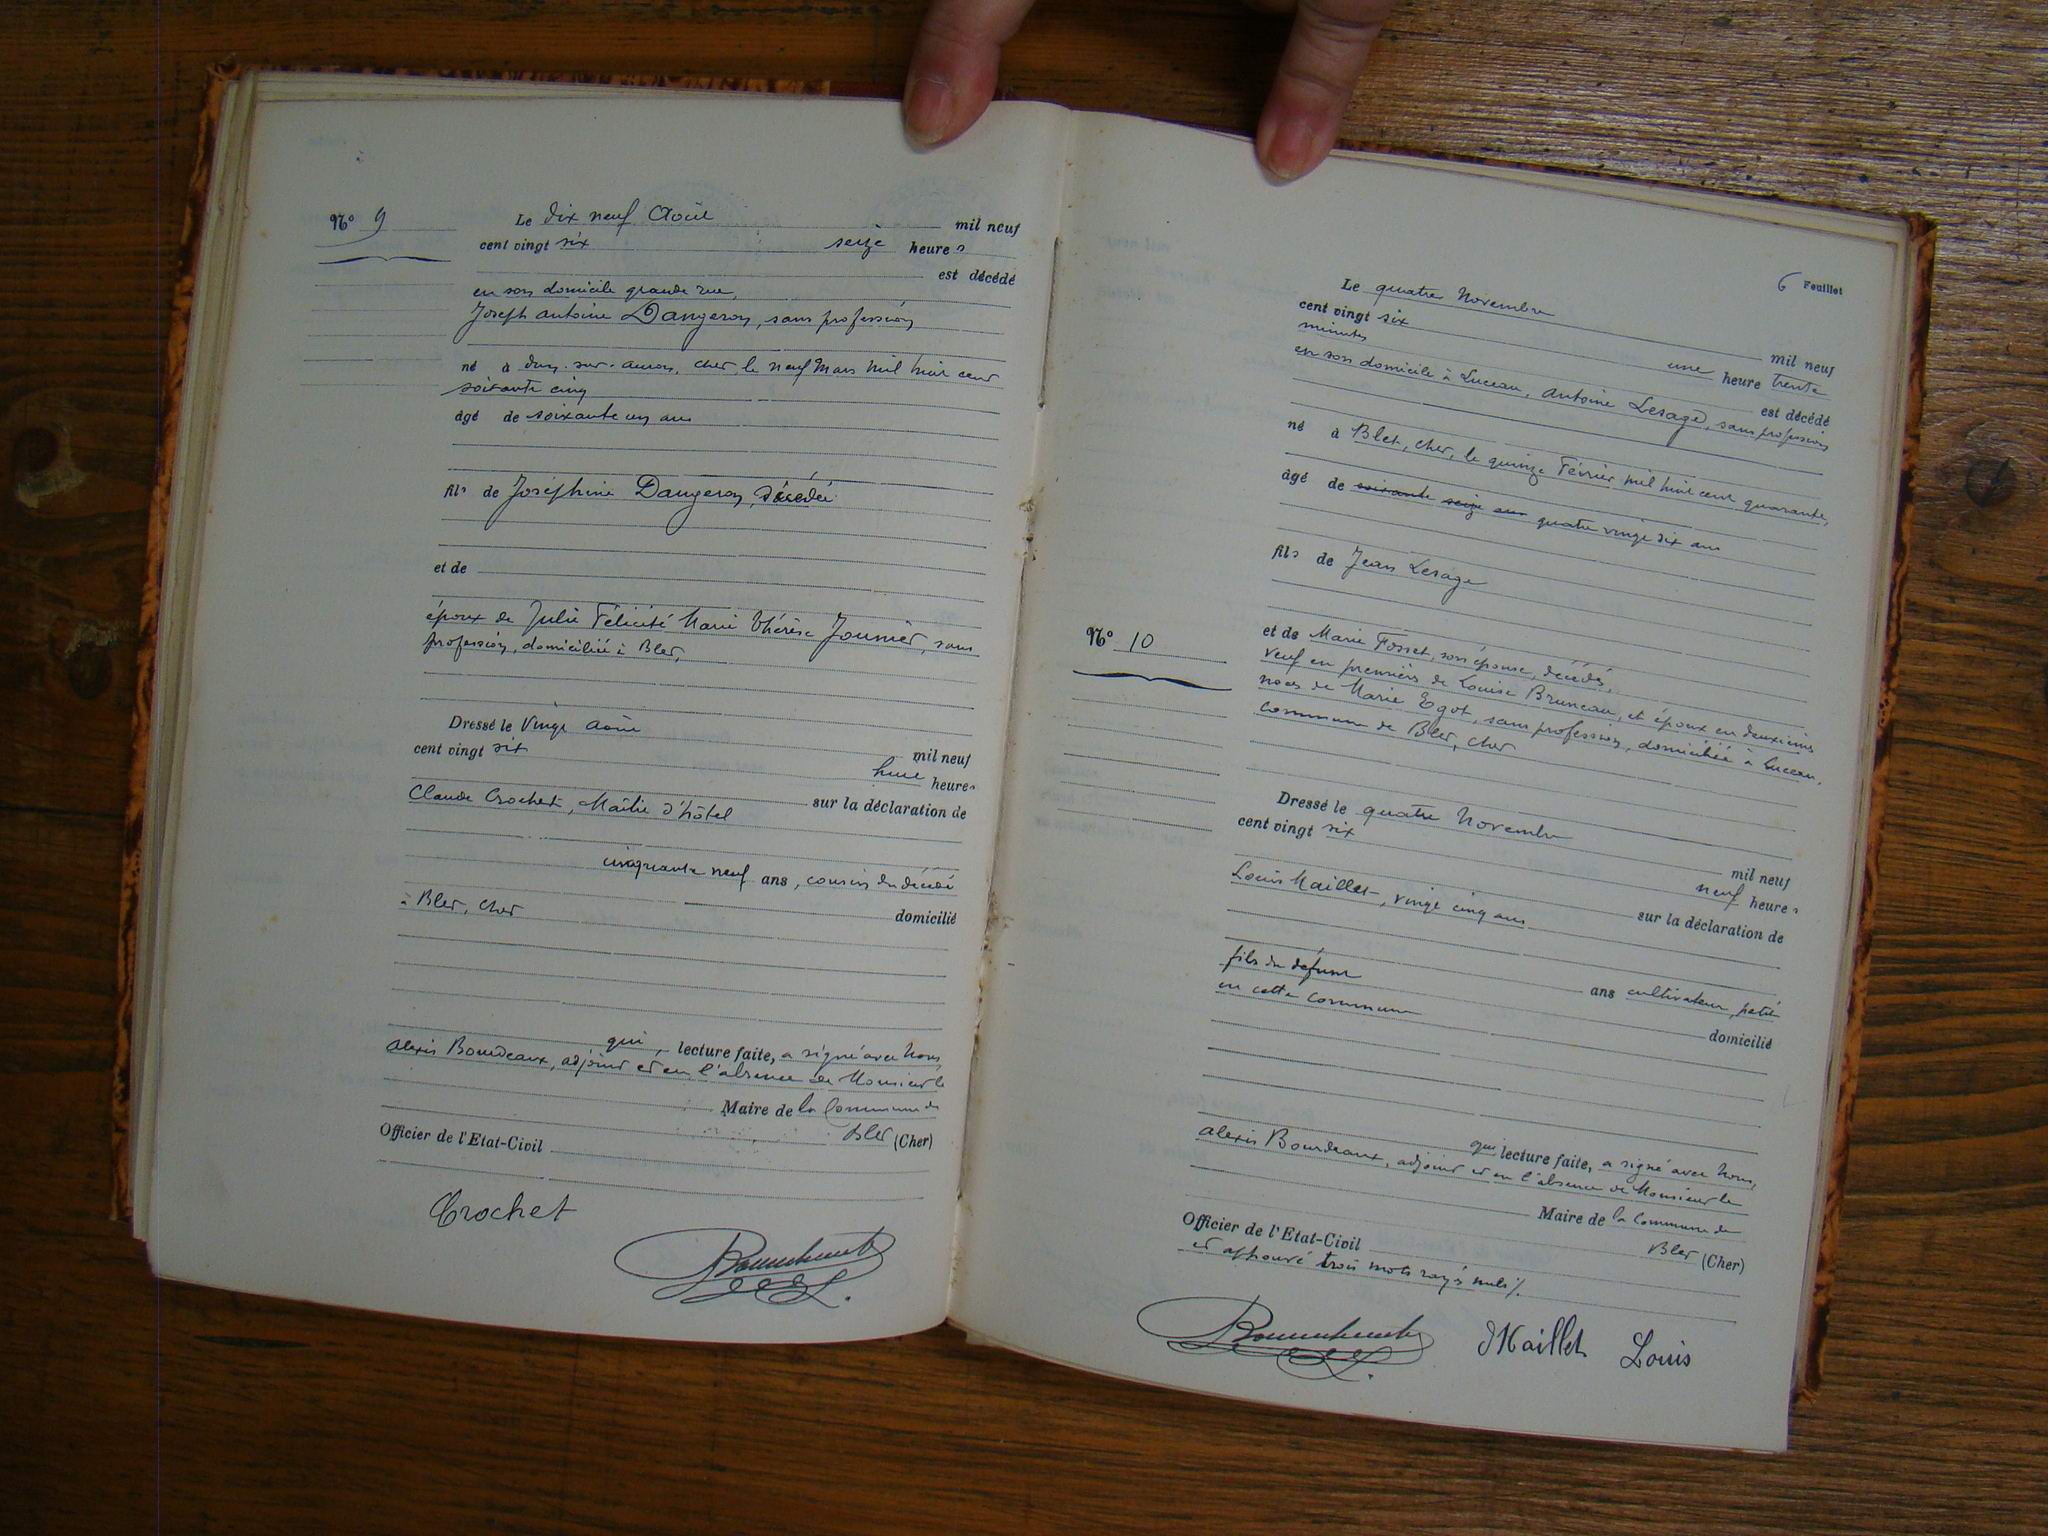 Nº 9
Le dix neuf Août mil neuf
cent vingt six seize heures
est décédé
en son domicile grande rue,
Joseph Antoine Dangeron, sans profession
né à Dun-sur-Auron, Cher le neuf Mars mil huit cent
soixante cinq
âgé de soixante un ans
fils de Joséphine Dangeron, décédée
et de
époux de Julie Félicité Marie Thérèse sans
profession, domiciliée à Blet,
Dressé le vingt août mil neuf
cent vingt six huit heures
sur la déclaration de
Claude Crochet, Maître d'hôtel
cinquante neuf ans, cousin du décédé
domicilié
à Blet, Cher
qui, lecture faite, a signé avec Nous,
Alexis Bourdeaux, adjoint et en l'absence de Monsieur le
Maire de la Commune de
Blet (Cher)
Officier de l'Etat-Civil
Crochet
6 Feuillet
Nº 10
Le quatre Novembre mil neuf
cent vingt six une heure trente
minutes est décédé
en son domicile à Luceau, Antoine Lesage, sans profession
né à Blet, Cher, le quinze Février mil huit cent quarante,
âgé de soixante seize ans quatre vingt six ans
fils de Jean Lesage
et de Marie Fosset, son épouse, décédés,
veuf en premières de Louise Bruneau, et époux en deuxièmes
noces de Marie Egot, sans profession, domiciliée à Luceau,
commune de Blet, Cher
Dressé le quatre Novembre mil neuf
cent vingt six neuf heures
sur la déclaration de
Louis Maillet, vingt cinq ans
ans cultivateur, petit
fils du défunt domicilié
en cette commune
qui lecture faite, a signé avec Nous,
Alexis Bourdeaux, adjoint et en l'absence de Monsieur le
Maire de la Commune de
Blet (Cher)
Officier de l'Etat-Civil
et approuvé trois mots rayés nuls %.
Maillet Louis